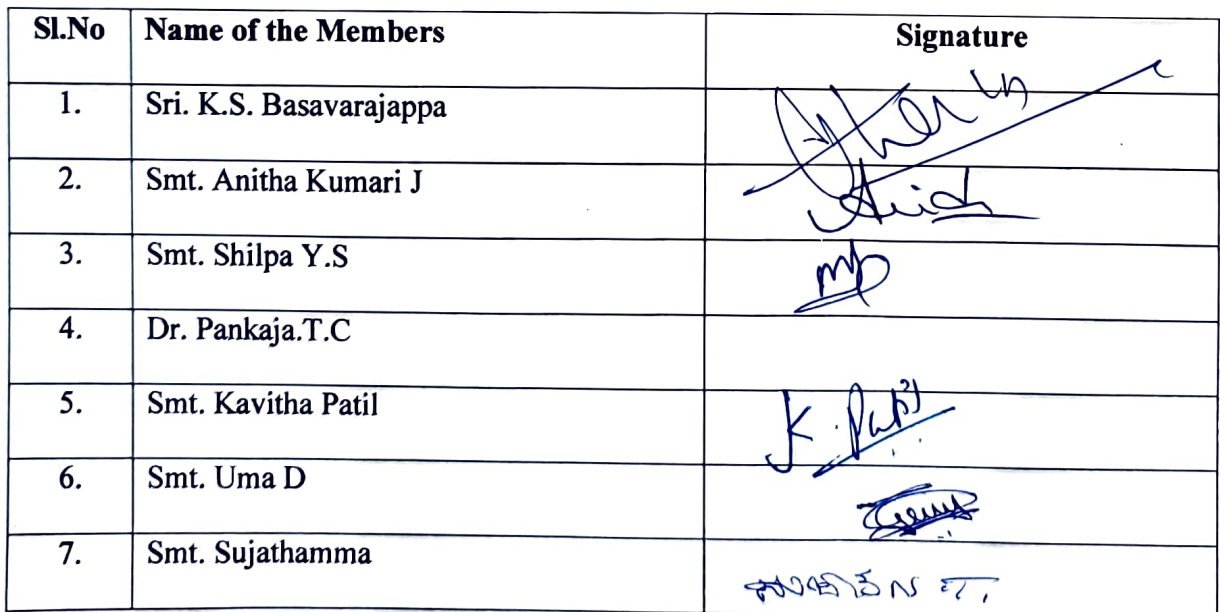 Sl.No Name of the Members Signature
1. Sri. K.S. Basavarajappa
2. Smt. Anitha Kumari J
3. Smt. Shilpa Y.S
4. Dr. Pankaja.T.C
5. Smt. Kavitha Patil K. Patil
6. Smt. Uma D
7. Smt. Sujathamma